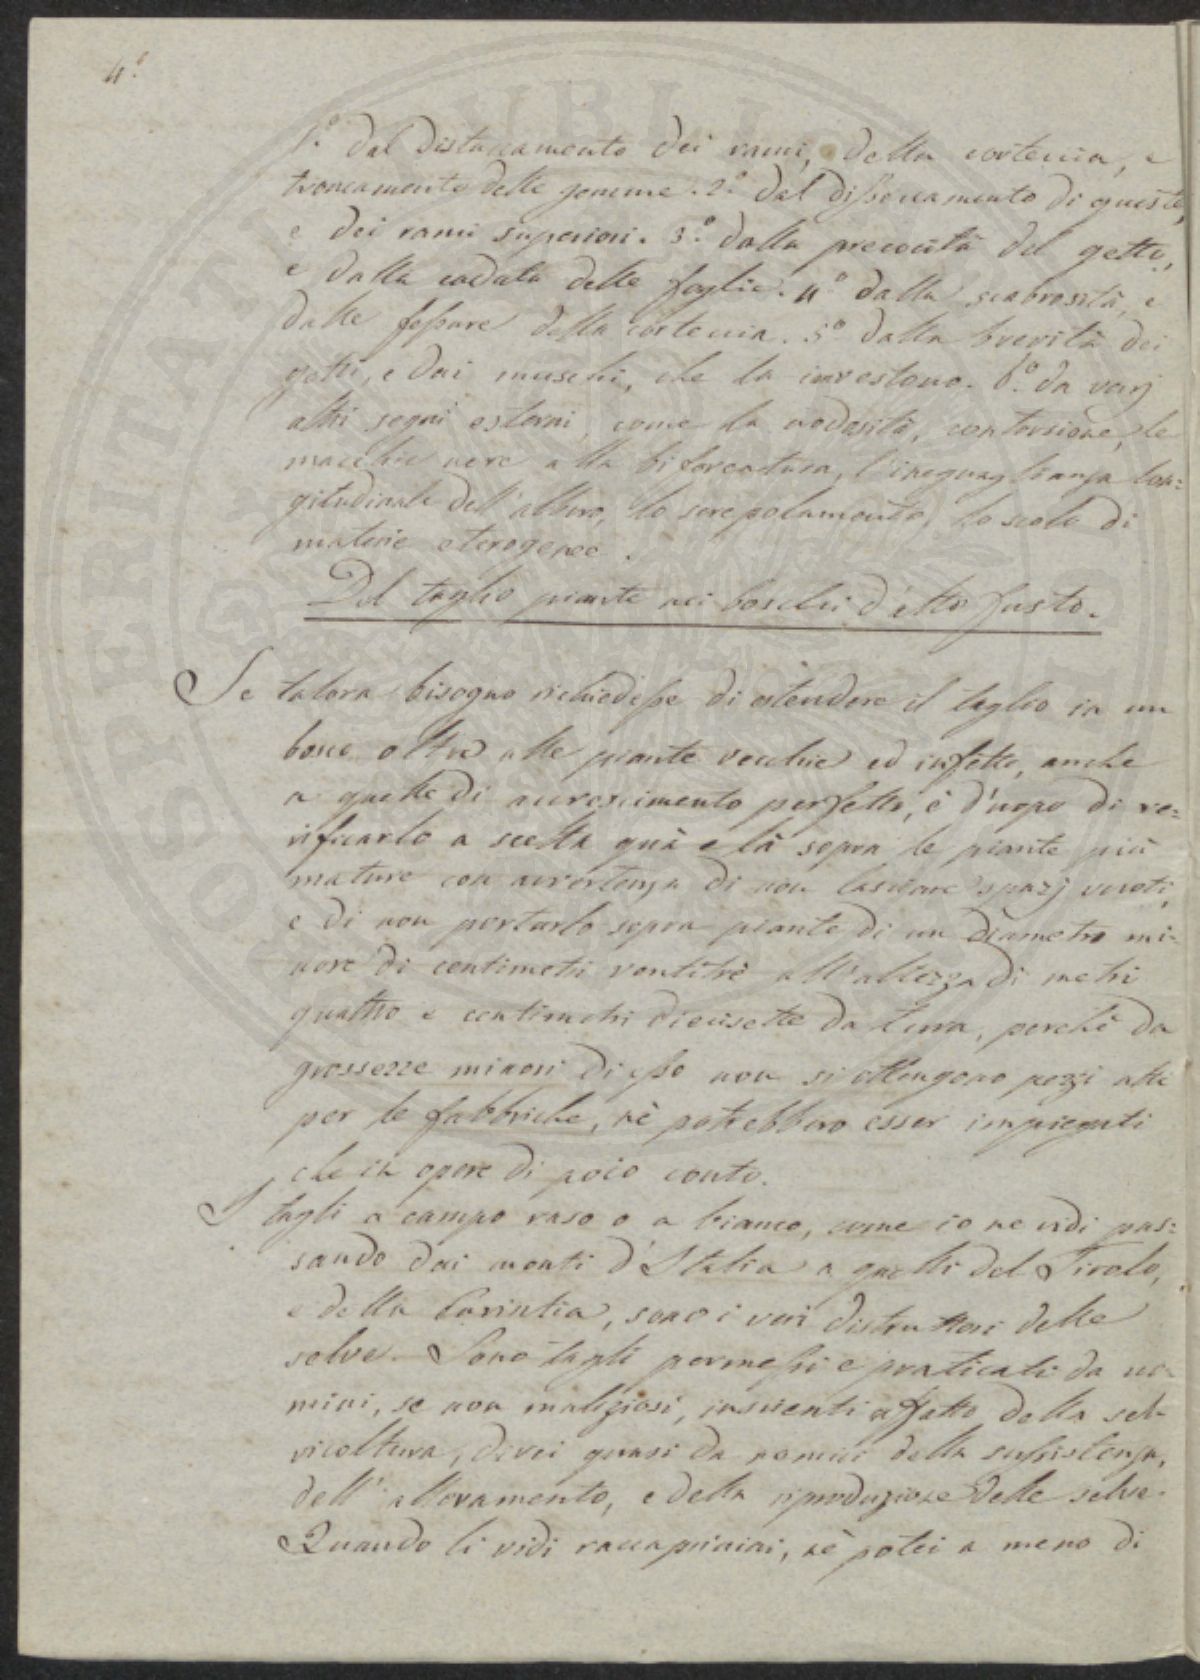 4.°
1.° dal distaccamento dei rami, della corteccia, e
troncamento delle gemme. 2.° dal disseccamento di queste,
e dei rami superiori. 3.° dalla precocità del getto,
e dalla caduta delle foglie. 4.° dalla scabrosità, e
dalle fessure della corteccia. 5.° dalla brevità dei
getti, e dai muschi, che la investono. 6.° da varj
altri segni esterni, come la nodosità, contorsione, le
macchie nere alla biforcatura, l'ineguaglianza lon=
gitudinale dell'albero, lo screpolamento, lo scolo di
materie eterogenee.
Del taglio piante nei boschi d'alto fusto.
Se talora bisogno richiedesse di estendere il taglio in un
bosco oltre alle piante vecchie ed infette, anche
a quelle di accrescimento perfetto, è d'uopo di ve=
rificarlo a scelta quà e là sopra le piante più
mature con avvertenza di non lasciare spazj vuoti,
e di non portarlo sopra piante di un diametro mi-
nore di centimetri ventitrè all'altezza di metri
quattro e centimetri diecisette da terra, perchè da
grossezze minori di esso non si ottengono pezzi atti
per le fabbriche, nè potrebbero esser impiegati
che in opere di poco conto.
I tagli a campo raso o a bianco, come io ne vidi pas=
sando dai monti d'Italia a quelli del Tirolo,
e della Carintia, sono i veri distruttori delle
selve. Sono tagli permessi e praticati da uo-
mini, se non maliziosi, inscienti affatto della sel-
vicoltura, direi quasi da nemici della sussistenza,
dell'allevamento, e della riproduzione delle selve.
Quando li vidi raccapricciai, nè potei a meno di